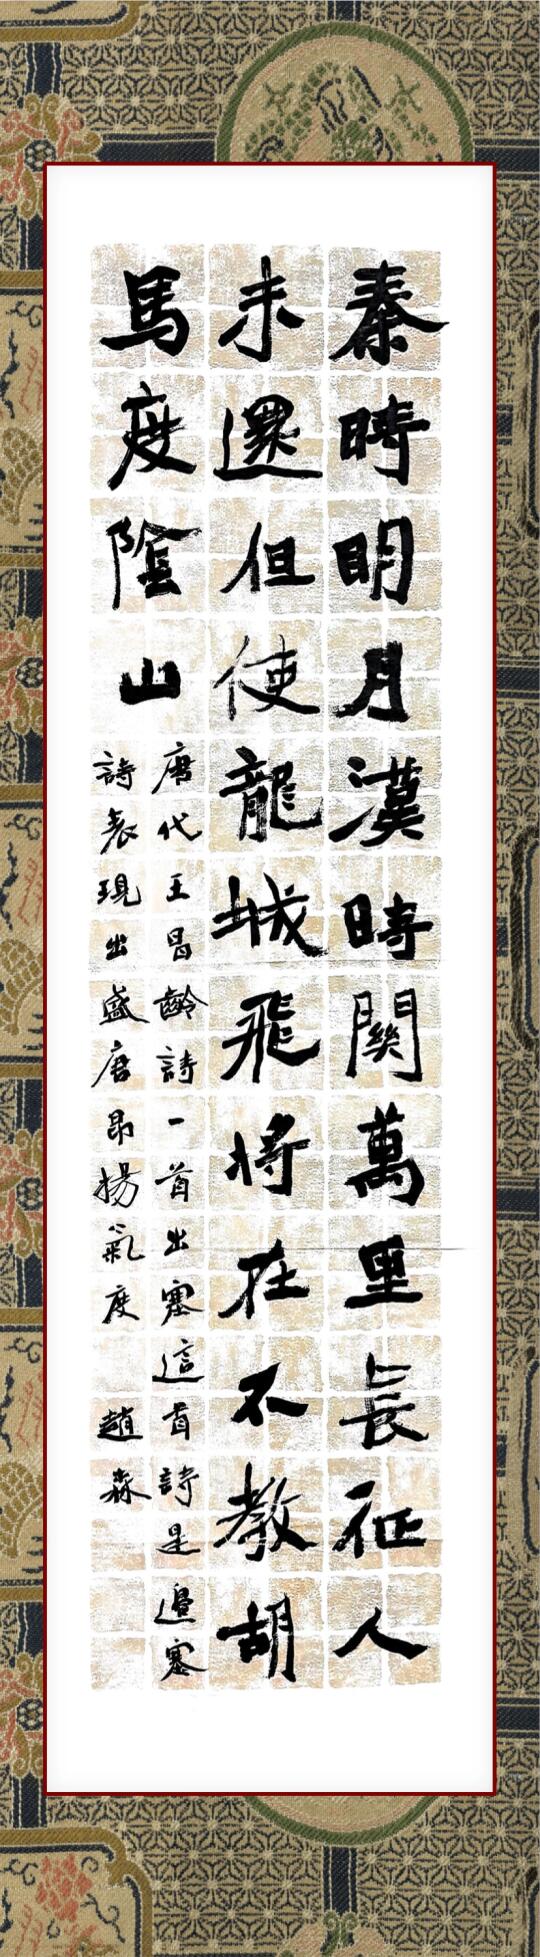 秦時明月漢時關萬里長征人
未還但使龍城飛將在不教胡
馬度陰山
唐代王昌齡詩一首出塞這首詩是邊塞
詩表現出盛唐昂揚氣度
趙淼